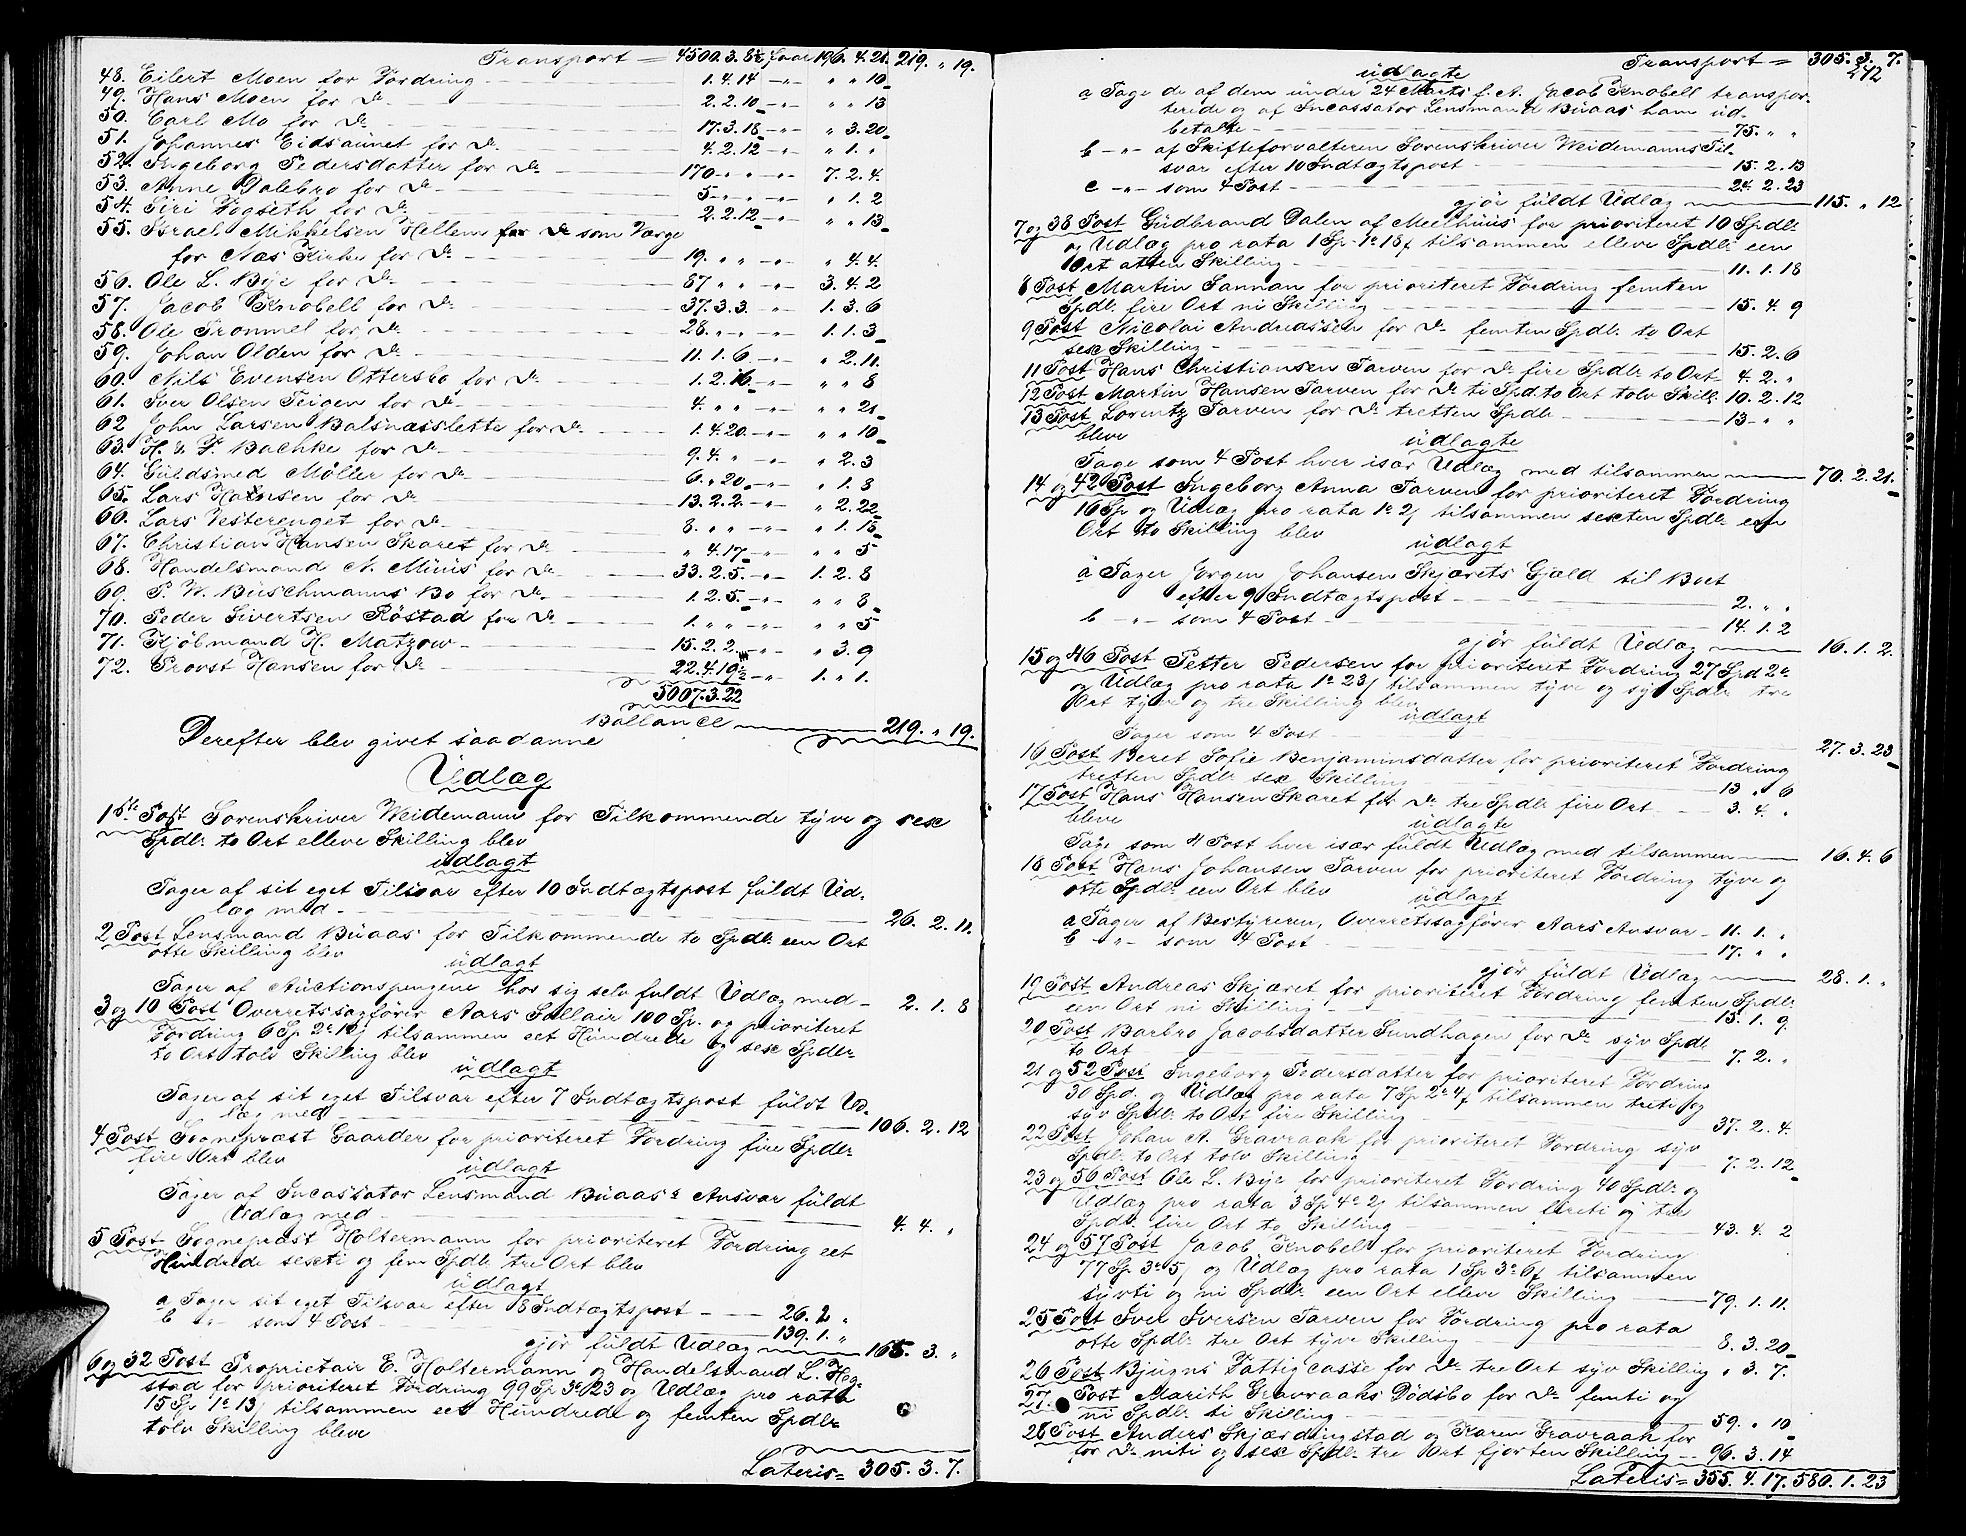 Transport = 4500.3.8½ faar 196.4.21. 219. " 19.
48. Eilert Moen for Fordring — 1.4.14 -"- " " 10
49. Hans Moen for Do — 2.2.10 -"- " " 13
50. Carl Mo for Do — 17.3.18 -"- " 3.20
51. Johannes Eidsaunet for Do — 4.2.12 -"- " 1. "
52. Ingeborg Pedersdatter for Do — 170 " " -"- 7.2.4.
53. Anne Dalebro for Do — 5 " " -"- " 1.2
54. Siri Fogseth for Do — 2.2.12 -"- " " 13
55. Israel Mikkelsen Hellem for Do som Værge
for Næs Kirke for Do — 19. " " -"- " 4.4.
56. Ole L. Bye for Do — 87 " " -"- 3.4.2
57. Jacob Knobell for Do — 37.3.3. -"- 1.3.6
58. Ole Trommel for Do — 28. " " -"- 1.1.3
59. Johan Olden for Do — 11.1.6 -"- " 2.11.
60. Nils Evensen Ottersbo for Do — 1.2.16 -"- " " 8
61. Iver Olsen Teigen for Do — 4. " " -"- " " 21
62 John Larsen Balsnæsslette for Do — 1.4.20 -"- " " 10
63. H. & F. Bachke for Do — 9.4. " -"- " 2.3
64. Guldsmed Møller for Do — 6. " 20 -"- " 1.8
65. Lars Halvorsen for Do — 13.2.2 -"- " 2.22
66. Lars Vesterenget for Do — 8. " " -"- " 1.18
67. Christian Hansen Skaret for Do — " 4.17 -"- " " 5
68. Handelsmand N. Müüs for Do — 33.2.5. -"- 1.2.8
69. P. W. Büschmanns Bo for Do — 1.2.5. -"- " " 8
70. Peder Sivertsen Röstad for Do — 1. " " -"- " " 5
71. Kjöbmand H. Matzow — 15.2.2 -"- " 3.9
72. Provst Hansen for Do — 22.4.19½ -"- 1. " 1.
5007.3.22
Ballance — 219. " 19.
Derefter blev givet saadanne
Udlæg
1ste Post Sorenskriver Weidemann for Tilkommende tyve og sex
Spdlr to Ort elleve Skilling blev
udlagt
Tager af sit eget Tilsvar efter 10 Indtægtspost fuldt Ud-
læg med — 26. 2. 11.
2 Post Lensmand Büaas for Tilkommende to Spdlr een Ort
otte Skilling blev
udlagt
Tager af Auctionspengene hos sig selv fuldt Udlæg med — 2. 1. 8
3 og 10 Post Overretssagfører Aars Sallair 100 Sp. og prioriteret
Fordring 6 Sp 2o 12 ß tilsammen eet Hundrede og sex Spdlr
to Ort tolv Skilling blev
udlagt
Tager af sit eget Tilsvar efter 7 Indtægtspost fuldt Ud-
læg med — 106. 2. 12
4 Post Sognepræst Gaarder for prioriteret Fordring fire Spdlr
fire Ort blev
udlagt
Tager af Incassator Lensmand Büaas's Ansvar fuldt
Udlæg med — 4. 4. "
5 Post Sognepræst Holtermann for prioriteret Fordring eet
Hundrede sexti og fem Spdlr tre Ort blev
udlagt
a Tager sit eget Tilsvar efter 8 Indtægtspost — 26. 2 "
b -"- som 4 Post — 139. 1. "
gjør fuldt Udlæg — 165. 3. "
6 og 32 Post Proprietair E. Holtermann og Handelsmand L. Heg-
stad for prioriteret Fordring 99 Sp 3o 23 og Udlæg pro rata
15 Sp 1o 13 ß tilsammen eet Hundrede og femten Spdlr
tolv Skilling bleve
Lateris = 305. 3. 7.
Transport = 305. 3. 7.
242
udlagte
a Tage de af dem under 24 Marts f. A. Jacob Knobell transpor-
terede og af Incassator Lensmand Büaas ham ud-
betalte — 75. " "
b -"- af Skifteforvalteren Sorenskriver Weidemanns Til-
svar efter 10 Indtægtspost — 15. 2. 13
c -"- som 4 Post — 24. 2. 23
gjør fuldt Udlæg — 115. " 12
7 og 38 Post Gudbrand Dalen af Meelhuus for prioriteret 10 Spdlr
og Udlæg pro rata 1 Sp 1o 18 ß tilsammen elleve Spdlr een
Ort atten Skilling — 11. 1. 18
8 Post Martin Sannan for prioriteret Fordring femten
Spdlr fire Ort ni Skilling — 15. 4. 9
9 Post Nicolai Andreassen for Do femten Spdlr to Ort
sex Skilling — 15. 2. 6
11 Post Hans Christiansen Tarven for Do fire Spdlr to Ort — 4. 2. "
12 Post Martin Hansen Tarven for Do ti Spd. to Ort tolv Skill. 10. 2. 12
13 Post Lorentz Tarven for Do tretten Spdlr — 13 — " "
bleve
udlagte
Tage som 4 Post hver især Udlæg med tilsammen — 70. 2. 21.
14 og 42 Post Ingeborg Anna Tarven for prioriteret Fordring
16 Sp og Udlæg pro rata 1o 2 ß tilsammen sexten Spdlr een
Ort to Skilling blev
udlagt
a Tager Jørgen Johansen Skjærets Gjæld til Boet
efter 9 Indtægtspost — 2. " "
b -"- som 4 Post — 14. 1. 2
gjør fuldt Udlæg — 16. 1. 2.
15 og 46 Post Petter Pedersen for prioriteret Fordring 27 Spd 2o
og Udlæg pro rata 1o 23 ß tilsammen tyve og syv Spdlr tre
Ort tyve og tre Skilling blev
udlagt
Tager som 4 Post — 27. 3. 23
16 Post Beret Sofie Benjaminsdatter for prioriteret Fordring
tretten Spdlr sex Skilling — 13 " 6
17 Post Hans Hansen Skaret for Do tre Spdlr fire Ort — 3. 4. "
bleve
udlagte
Tage som 4 Post hver især fuldt Udlæg med tilsammen — 16. 4. 6
18 Post Hans Johansen Tarven for prioriteret Fordring tyve og
otte Spdlr een Ort blev
udlagt
a Tager af Bestyreren, Overretssagfører Aars Ansvar — 11. 1. "
b -"- som 4 Post — 17. " "
gjør fuldt Udlæg — 28. 1. "
19 Post Andreas Skjæret for prioriteret Fordring femten Spdlr
een Ort ni Skilling — 15. 1. 9.
20 Post Barbro Jacobsdatter Sundhagen for Do syv Spdlr
to Ort — 7. 2. "
21 og 52 Post Ingeborg Pedersdatter for prioriteret Fordring
30 Spd. og Udlæg pro rata 7 Sp 2o 4 ß tilsammen treti og
syv Spdlr to Ort fire Skilling — 37. 2. 4.
22 Post Johan A. Gravraak for prioriteret Fordring syv
Spdlr to Ort tolv Skilling — 7. 2. 12
23 og 56 Post Ole L. Bye for prioriteret Fordring 40 Spdlr og
Udlæg pro rata 3 Sp 4o 2 ß tilsammen firti og tre
Spdlr fire Ort to Skilling — 43. 4. 2
24 og 57 Post Jacob Knobell for prioriteret Fordring
77 Sp 3o 5 ß og Udlæg pro rata 1 Sp 3o 6 ß tilsammen
sytti og ni Spdlr een Ort elleve Skilling — 79. 1. 11.
25 Post Iver Iversen Tarven for Fordring pro rata
otte Spdlr tre Ort tyve Skilling — 8. 3. 20
26 Post Bjugns Fattigcasse for Do tre Ort syv Skilling " 3. 7.
27 Post Marith Gravraaks Dødsbo for Do femti og
ni Spdlr ti Skilling — 59. " 10
28 Post Anders Skjærdingstad og Karen Gravraak for
for Do niti og sex Spdlr tre Ort fjorten Skilling — 96. 3. 14
Lateris = 355. 4. 17. 580. 1. 23